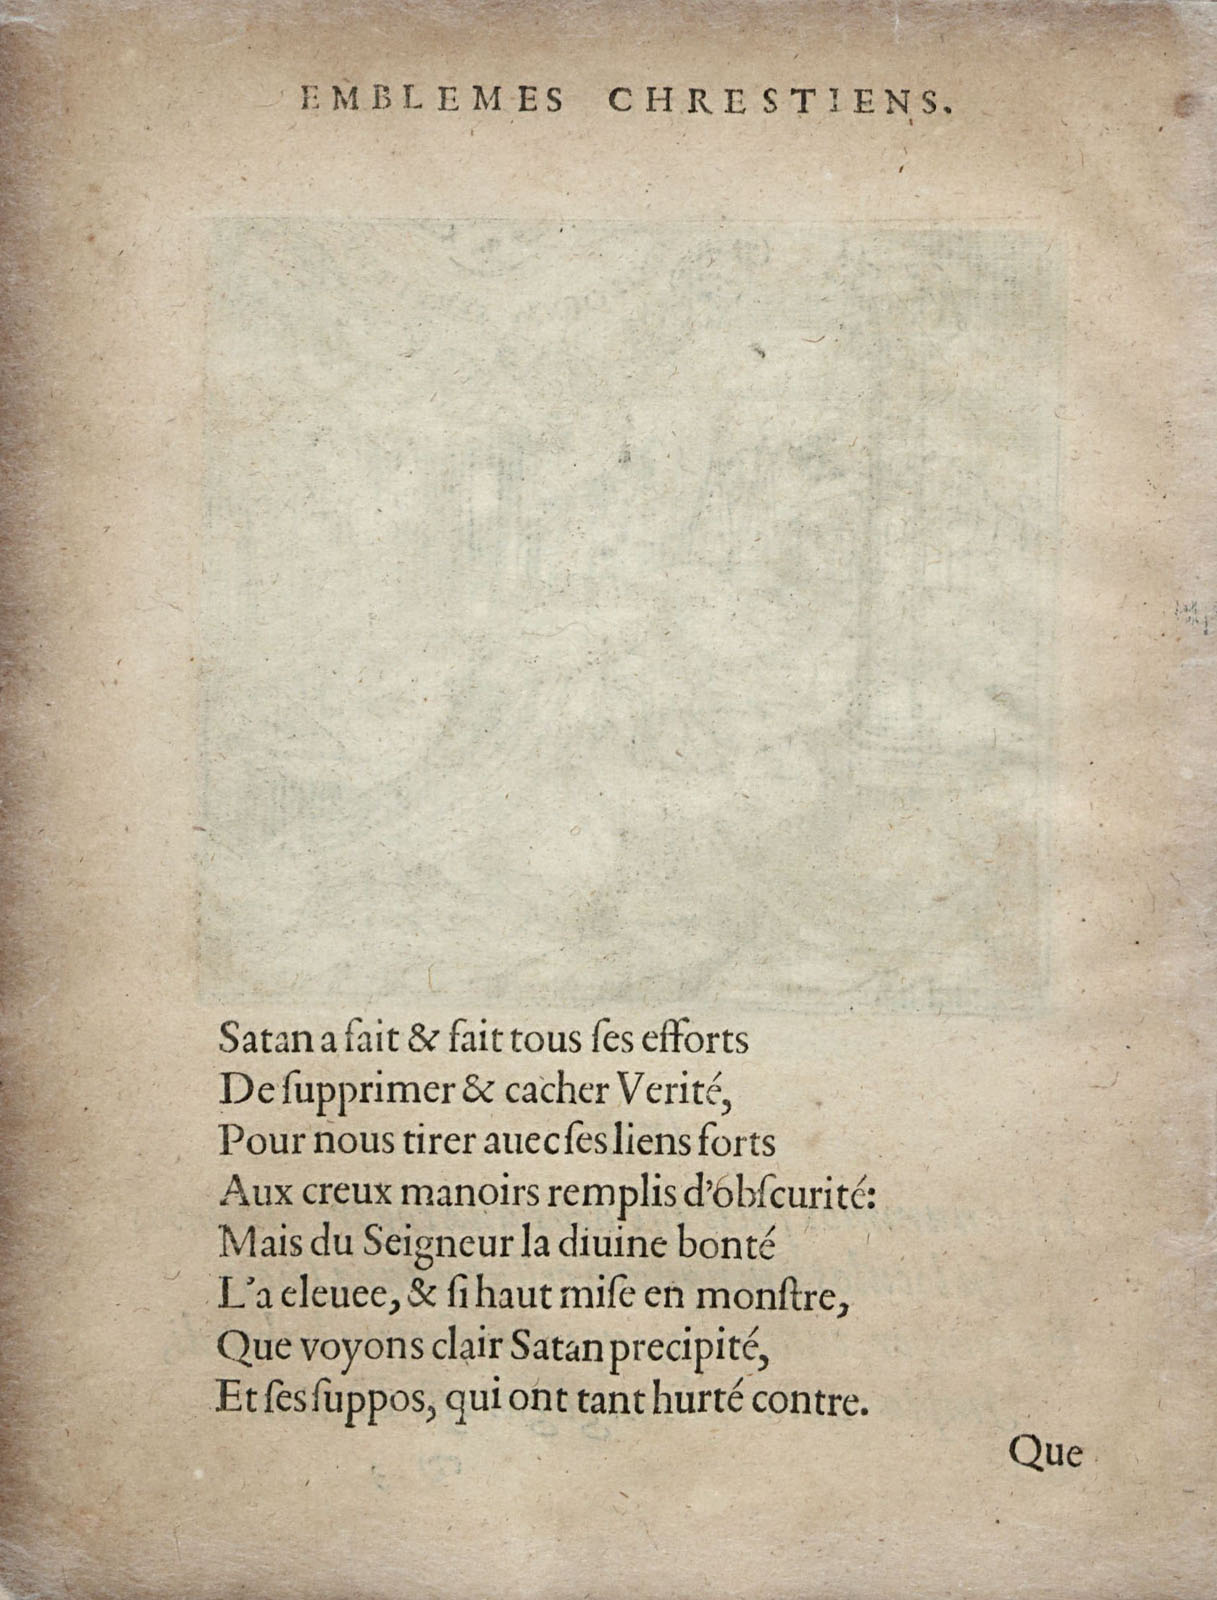 EMBLEMES CHRESTIENS.
Satan a fait & fait tous ſes efforts
De ſupprimer & cacher Verité,
Pour nous tirer auec ſes liens forts
Aux creux manoirs remplis d'obſcurité:
Mais du Seigneur la diuine bonté
L'a eleuee, & ſi haut miſe en monſtre,
Que voyons clair Satan precipité,
Et ſes ſuppos, qui ont tant hurté contre.
Que